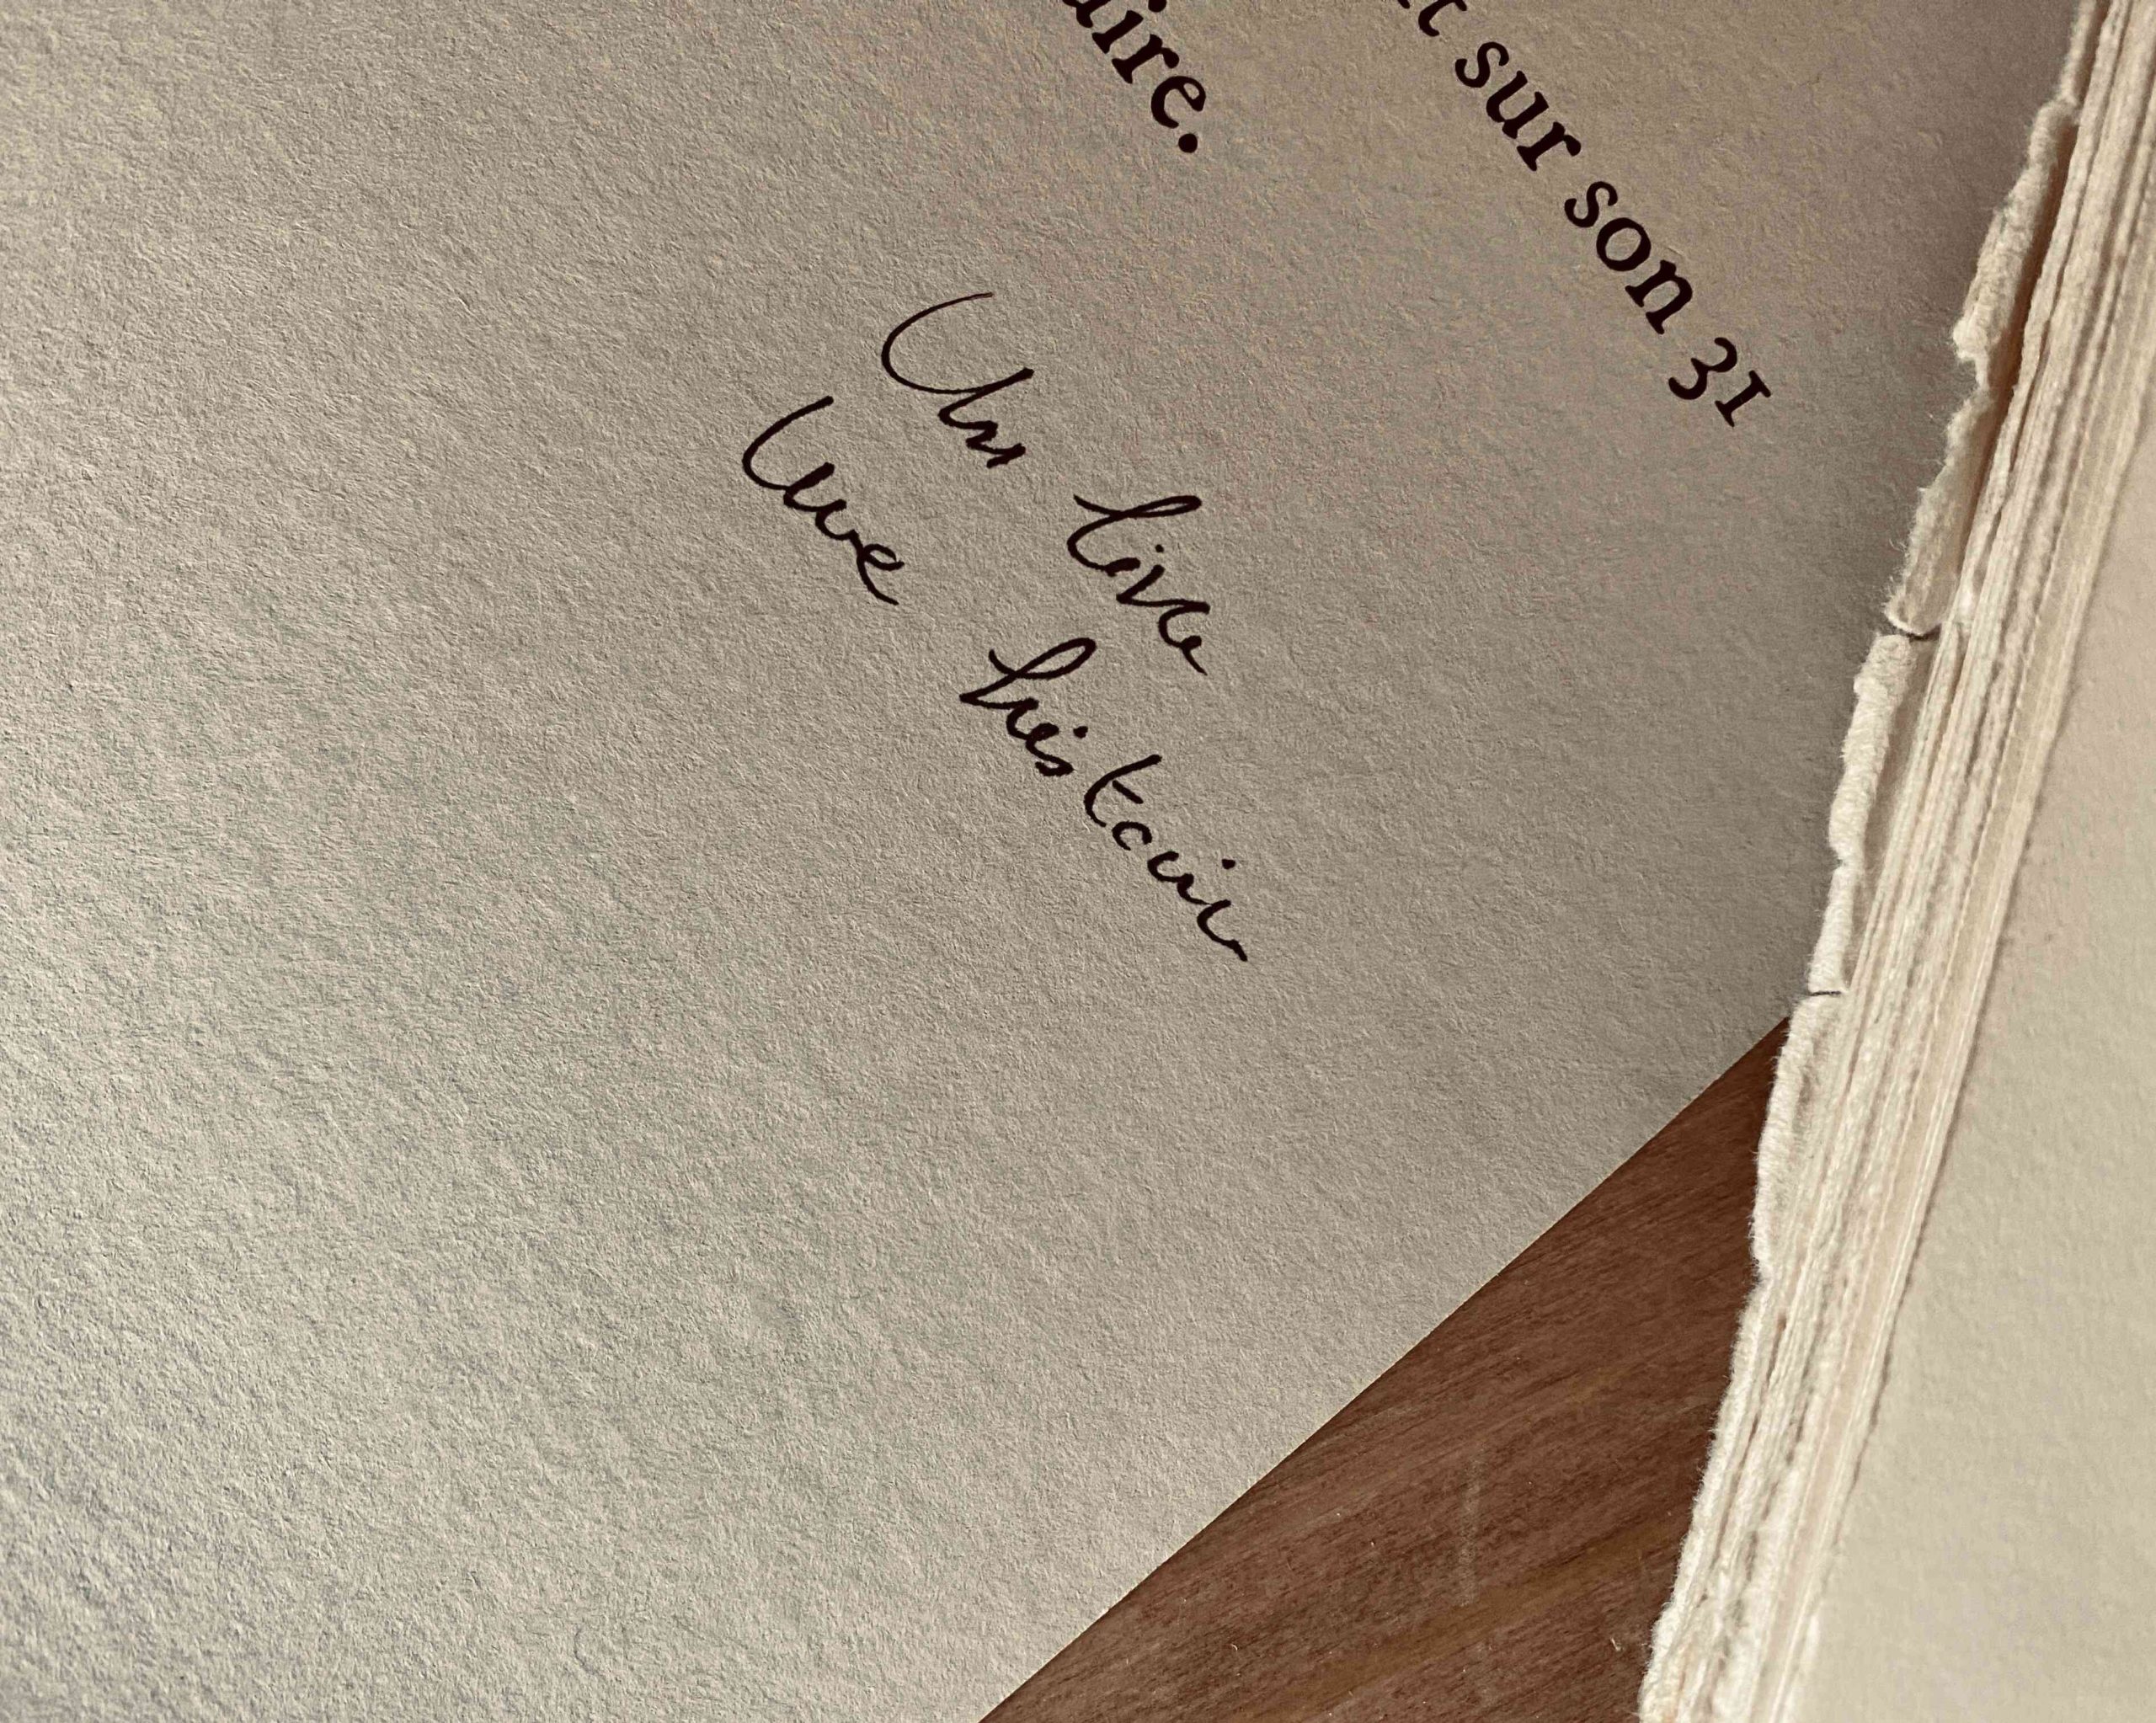 t sur son 31
aire.
Un livre
Une histoire